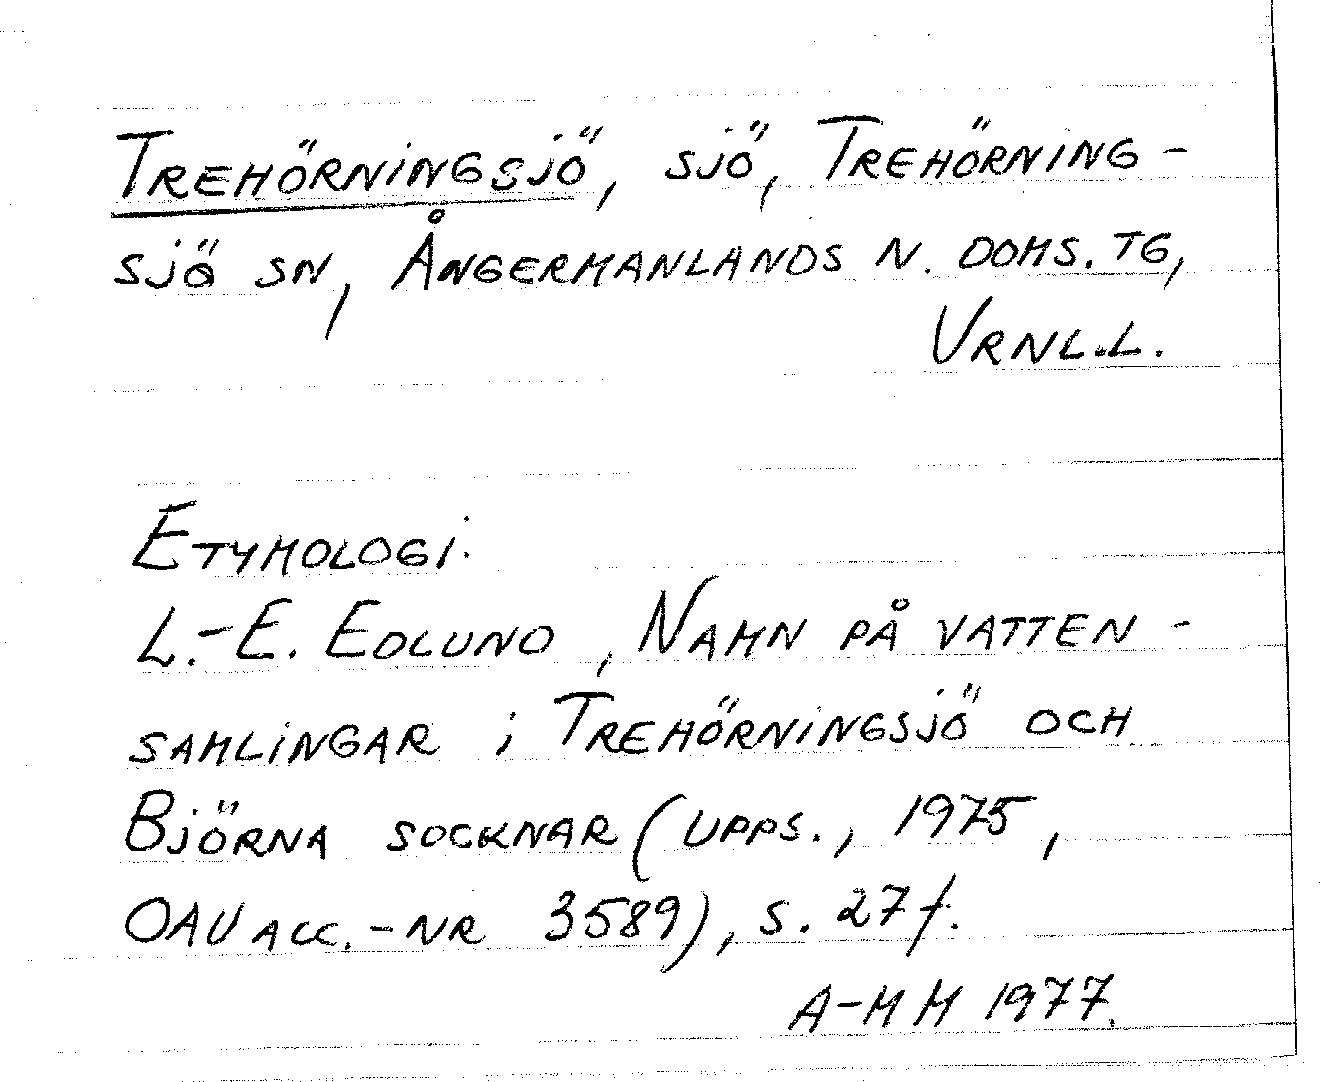 Trehörningsjö, sjö, Trehörning-
sjö sn, Ångermanlands n. doms. tg,
Vrnl.l.
Etymologi:
L.-E. Edlund, Namn på vatten-
samlingar i Trehörningsjö och
Björna socknar (Upps., 1975,
OAU acc.-nr 3589), s. 27 f.
A-M M 1977.